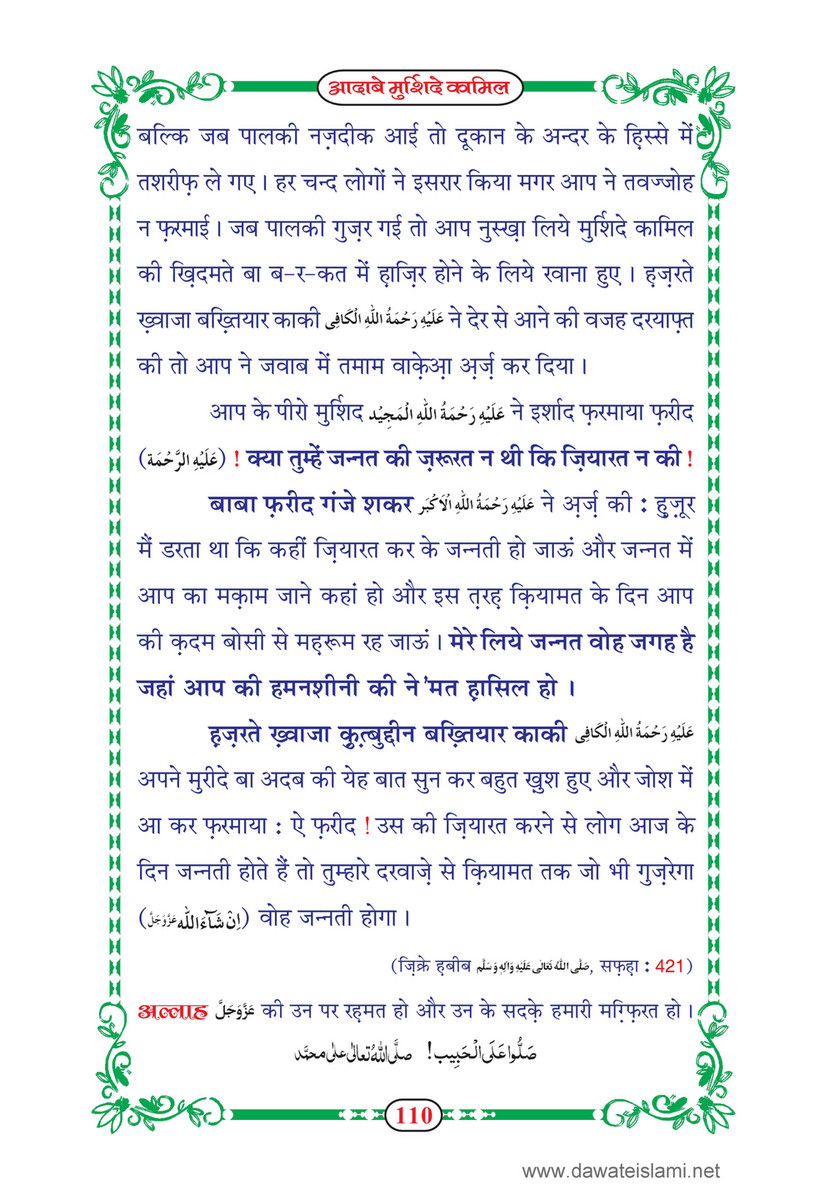 आदाबे मुर्शिदे कामिल
बल्कि जब पालकी नज़दीक आई तो दूकान के अन्दर के हिस्से में
तशरीफ़ ले गए । हर चन्द लोगों ने इसरार किया मगर आप ने तवज्जोह
न फ़रमाई । जब पालकी गुज़र गई तो आप नुस्ख़ा लिये मुर्शिदे कामिल
की ख़िदमते बा ब-र-कत में ह़ाज़िर होने के लिये रवाना हुए । ह़ज़रते
ख़्वाजा बख़्तियार काकी عَلَيْهِ رَحْمَةُ اللهِ الْكَافِى ने देर से आने की वजह दरयाफ़्त
की तो आप ने जवाब में तमाम वाके़आ़ अ़र्ज़ कर दिया ।
आप के पीरो मुर्शिद عَلَيْهِ رَحْمَةُ اللهِ الْمَجِيْد ने इर्शाद फ़रमाया फ़रीद
(عَلَيْهِ الرَّحْمَة) ! क्या तुम्हें जन्नत की ज़रूरत न थी कि ज़ियारत न की !
बाबा फ़रीद गंजे शकर عَلَيْهِ رَحْمَةُ اللهِ الْاَكْبَر ने अ़र्ज़ की : हुज़ूर
मैं डरता था कि कहीं ज़ियारत कर के जन्नती हो जाऊं और जन्नत में
आप का मक़ाम जाने कहां हो और इस त़रह़ क़ियामत के दिन आप
की क़दम बोसी से मह़रूम रह जाऊं । मेरे लिये जन्नत वोह जगह है
जहां आप की हमनशीनी की ने'मत ह़ासिल हो ।
ह़ज़रते ख़्वाजा कुत़्बुद्दीन बख़्तियार काकी عَلَيْهِ رَحْمَةُ اللهِ الْكَافِى
अपने मुरीदे बा अदब की येह बात सुन कर बहुत ख़ुश हुए और जोश में
आ कर फ़रमाया : ऐ फ़रीद ! उस की ज़ियारत करने से लोग आज के
दिन जन्नती होते हैं तो तुम्हारे दरवाज़े से क़ियामत तक जो भी गुज़रेगा
(اِنْ شَآءَ اللّٰه عَزَّوَجَلَّ) वोह जन्नती होगा ।
(ज़िक्रे ह़बीब صَلَّى اللهُ تَعَالٰى عَلَيْهِ وَاٰلِهٖ وَسَلَّم, सफ़ह़ा : 421)
अल्लाह عَزَّوَجَلَّ की उन पर रह़मत हो और उन के सदके़ हमारी मग़्फ़िरत हो ।
صَلُّوا عَلَى الْحَبِيب! صلَّى اللهُ تعالٰى على محمَّد
110
www.dawateislami.net